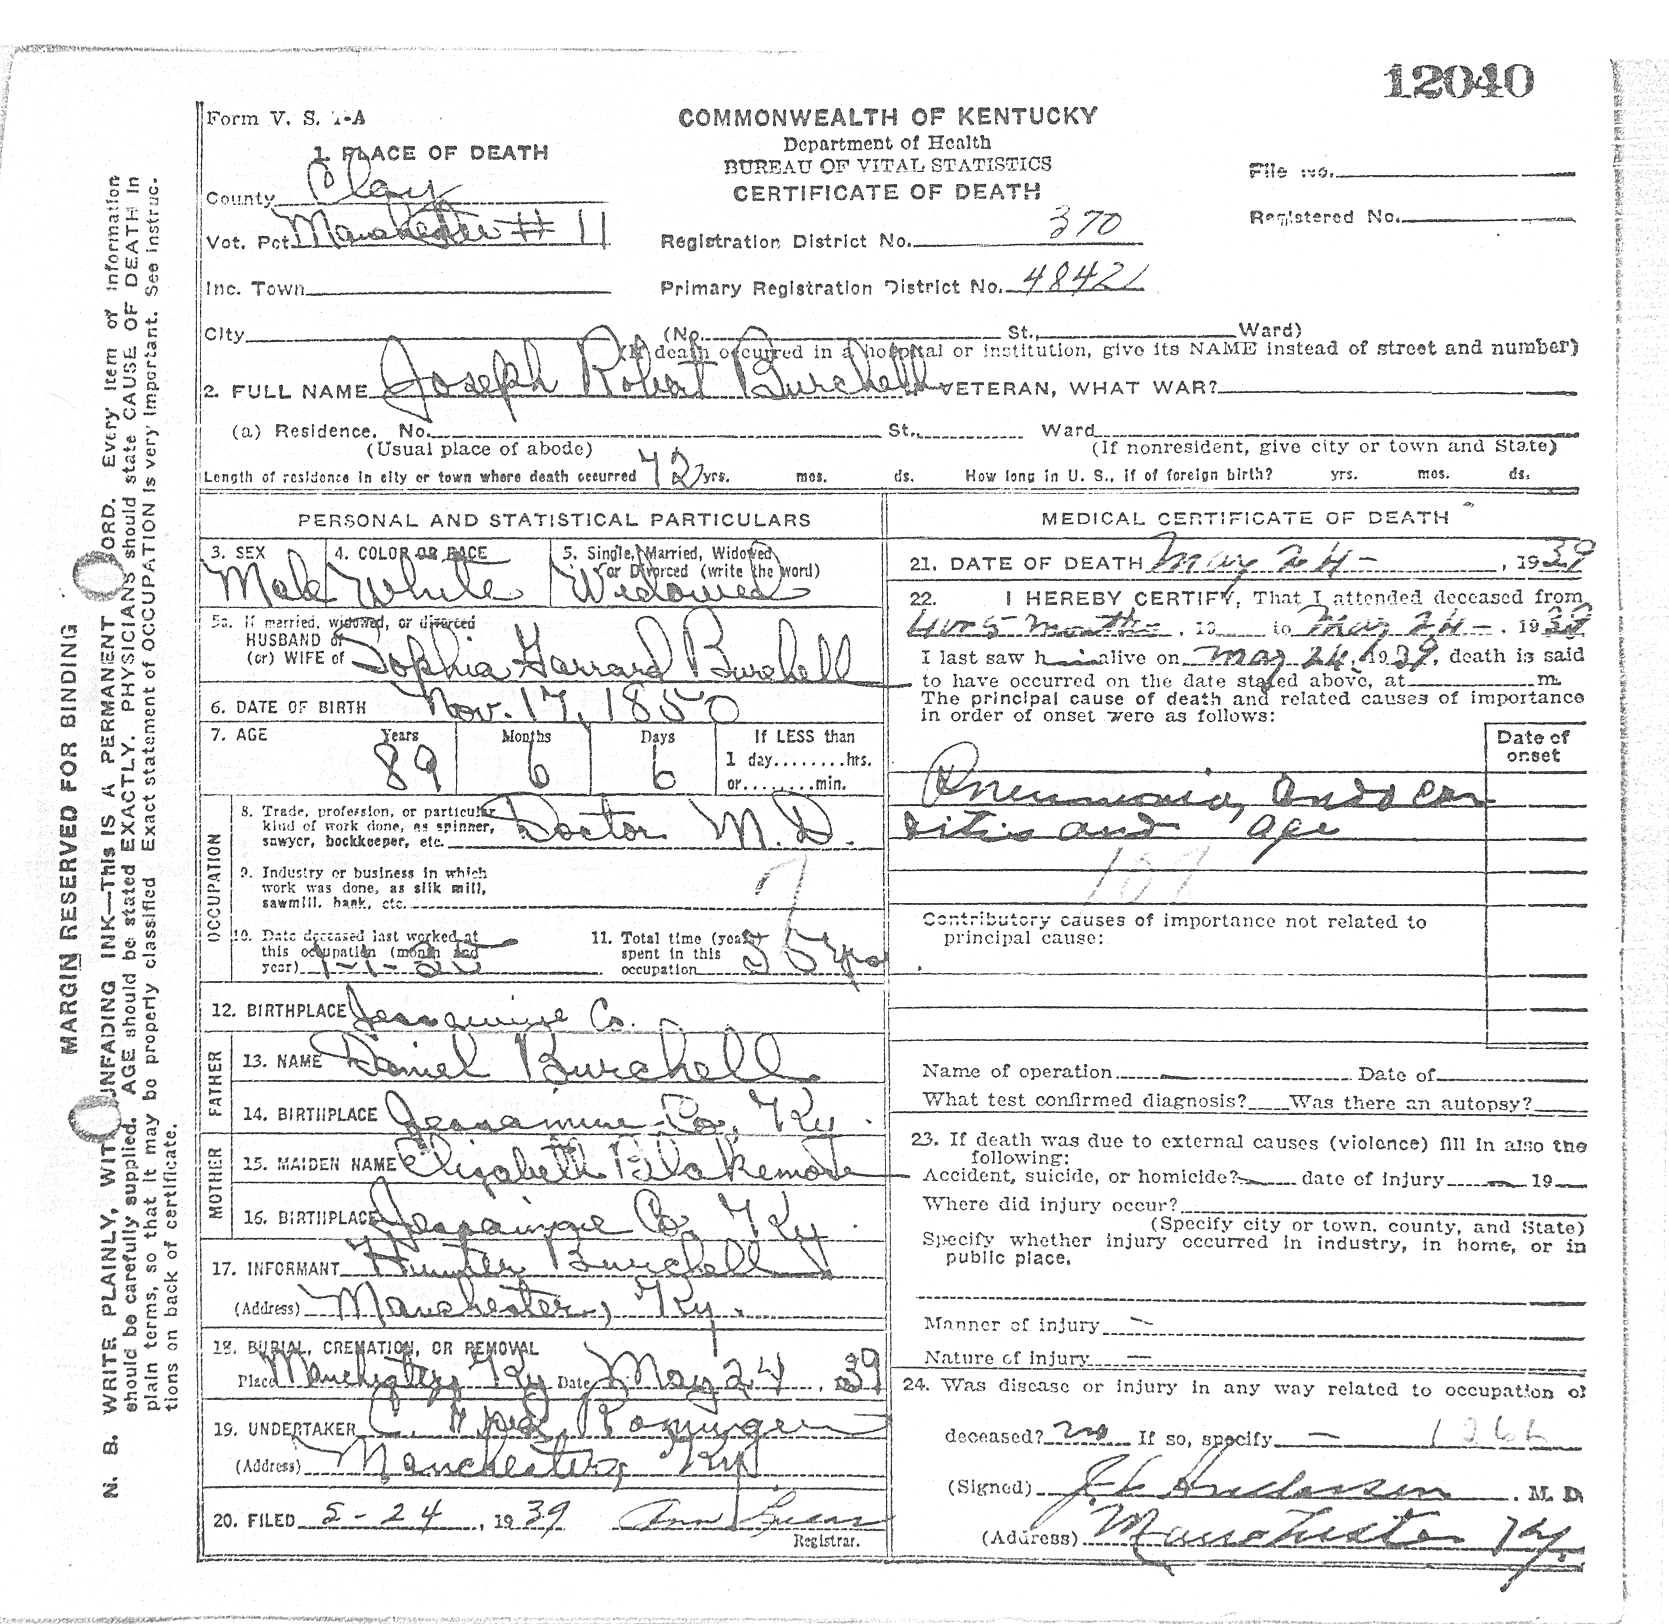 12040
Form V. S. 1-A
COMMONWEALTH OF KENTUCKY
Department of Health
BUREAU OF VITAL STATISTICS
CERTIFICATE OF DEATH
1. PLACE OF DEATH
County Clay
Vot. Pct. Manchester # 11
Inc. Town
File No.
Registered No.
Registration District No. 370
Primary Registration District No. 4842
City (No. St., Ward)
(If death occurred in a hospital or institution, give its NAME instead of street and number)
2. FULL NAME Joseph Robert Burchell VETERAN, WHAT WAR?
(a) Residence. No. St., Ward
(Usual place of abode) (If nonresident, give city or town and State)
Length of residence in city or town where death occurred 72 yrs. mos. ds. How long in U. S., if of foreign birth? yrs. mos. ds.
PERSONAL AND STATISTICAL PARTICULARS
3. SEX Male
4. COLOR OR RACE White
5. Single, Married, Widowed, or Divorced (write the word) Widowed
5a. If married, widowed, or divorced
HUSBAND of
(or) WIFE of Sophia Garrard Burchell
6. DATE OF BIRTH Nov. 17, 1850
7. AGE Years 89 Months 6 Days 6 If LESS than
1 day........hrs.
or........min.
OCCUPATION
8. Trade, profession, or particular
kind of work done, as spinner,
sawyer, bookkeeper, etc. Doctor M.D.
9. Industry or business in which
work was done, as silk mill,
sawmill, bank, etc.
10. Date deceased last worked at
this occupation (month and
year) 1-1-25
11. Total time (years)
spent in this
occupation 55 yrs
12. BIRTHPLACE Jessamine Co.
FATHER
13. NAME Daniel Burchell
14. BIRTHPLACE Jessamine Co, Ky.
MOTHER
15. MAIDEN NAME Elizabeth Blakemore
16. BIRTHPLACE Jessamine Co, Ky.
17. INFORMANT Hunter Burchell
(Address) Manchester, Ky.
18. BURIAL, CREMATION, OR REMOVAL
Place Manchester, Ky Date May 24, 1939
19. UNDERTAKER Rominger
(Address) Manchester, Ky
20. FILED 5-24, 1939 Ann
Registrar.
MEDICAL CERTIFICATE OF DEATH
21. DATE OF DEATH May 24 - , 1939
22. I HEREBY CERTIFY, That I attended deceased from
4 or 5 months, 19 to May 24 - , 1939
I last saw him alive on May 24, 1939, death is said
to have occurred on the date stated above, at m.
The principal cause of death and related causes of importance
in order of onset were as follows:
Date of
onset
Pneumonia, endocar
ditis and age
107
Contributory causes of importance not related to
principal cause:
Name of operation Date of
What test confirmed diagnosis? Was there an autopsy?
23. If death was due to external causes (violence) fill in also the
following:
Accident, suicide, or homicide? date of injury 19
Where did injury occur?
(Specify city or town, county, and State)
Specify whether injury occurred in industry, in home, or in
public place.
Manner of injury —
Nature of injury —
24. Was disease or injury in any way related to occupation of
deceased? no If so, specify —
(Signed) J L Anderson, M. D.
(Address) Manchester Ky.
MARGIN RESERVED FOR BINDING
N. B. WRITE PLAINLY, WITH UNFADING INK—THIS IS A PERMANENT RECORD. Every item of information
should be carefully supplied. AGE should be stated EXACTLY. PHYSICIANS should state CAUSE OF DEATH in
plain terms, so that it may be properly classified. Exact statement of OCCUPATION is very important. See instruc-
tions on back of certificate.